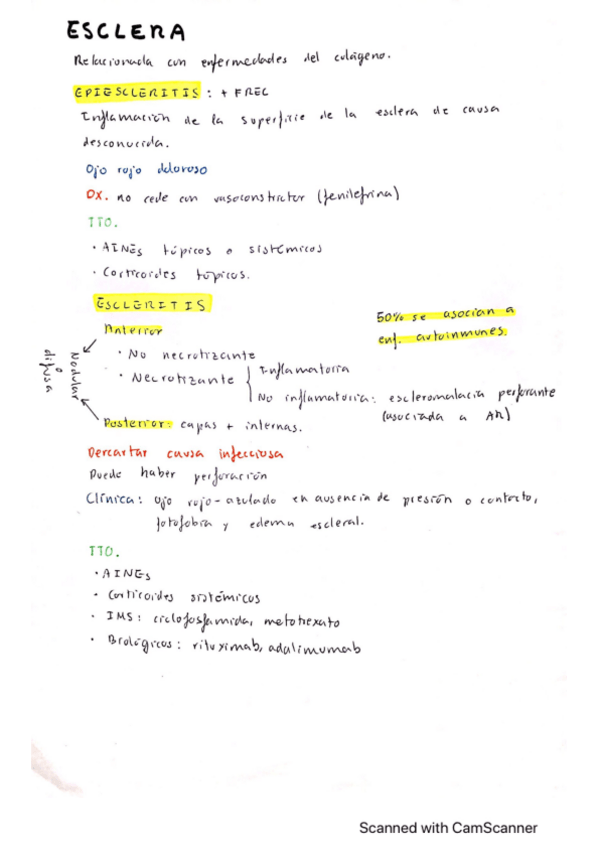 ESCLERA
Relacionada con enfermedades del colágeno.
EPIESCLERITIS: + FREC
Inflamación de la superficie de la esclera de causa
desconocida.
Ojo rojo doloroso
DX. no cede con vasoconstrictor (fenilefrina)
TTO.
· AINEs tópicos o sistémicos
· Corticoides tópicos.
ESCLERITIS
50% se asocian a
enf. autoinmunes.
Anterior
· No necrotizante
· Necrotizante { Inflamatoria
No inflamatoria: escleromalacia perforante
(asociada a AR)
Nodular
o
difusa
Posterior: capas + internas.
Dercartar causa infecciosa
Puede haber perforación
Clínica: ojo rojo-azulado en ausencia de presión o contacto,
fotofobia y edema escleral.
TTO.
· AINEs
· Corticoides sistémicos
· IMS: ciclofosfamida, metotrexato
· Biológicos: rituximab, adalimumab
Scanned with CamScanner